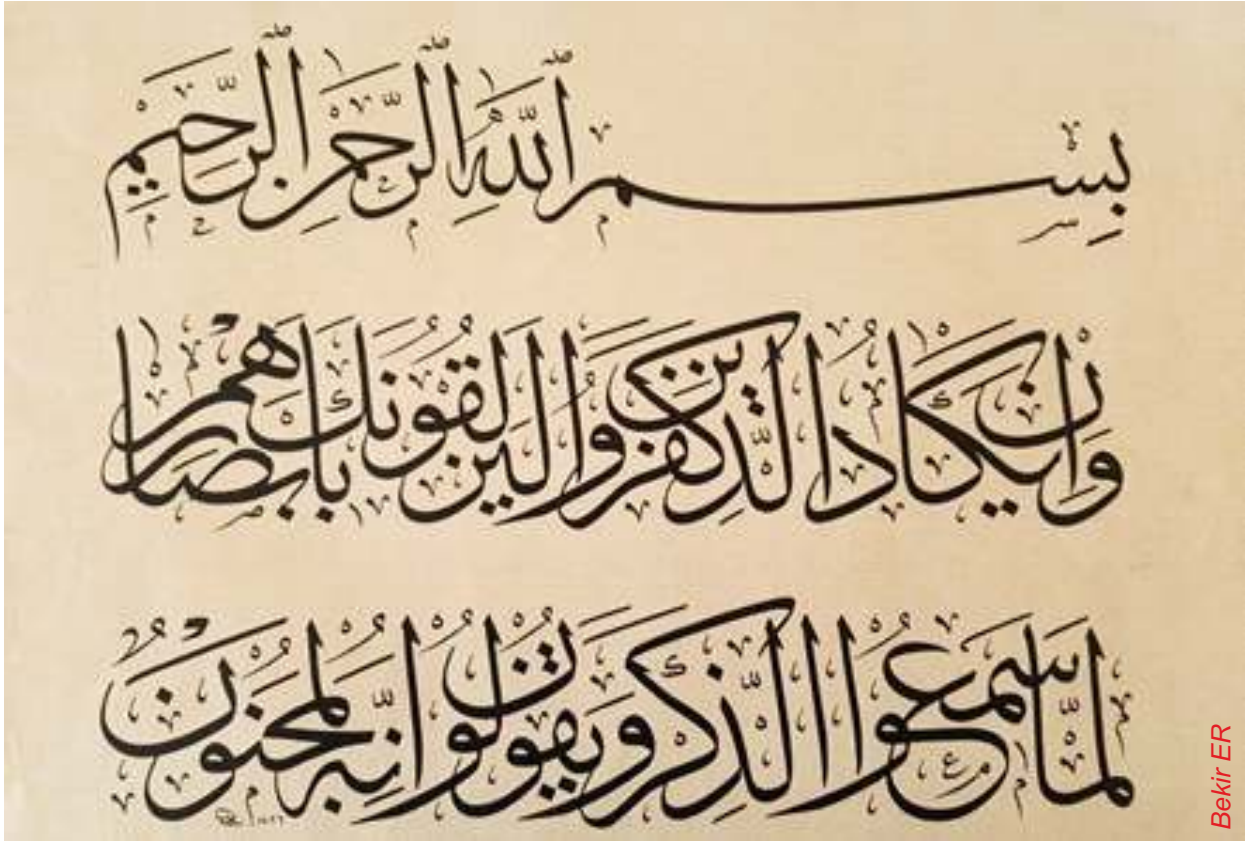 بِسْمِ ٱللَّهِ ٱلرَّحْمٰنِ ٱلرَّحِيمِ
وَاِنْ يَكَادُ الَّذِينَ كَفَرُوا لَيُزْلِقُونَكَ بِاَبْصَارِهِمْ
لَمَّا سَمِعُوا الذِّكْرَ وَيَقُولُونَ اِنَّهُ لَمَجْنُونٌ
Bekir ER